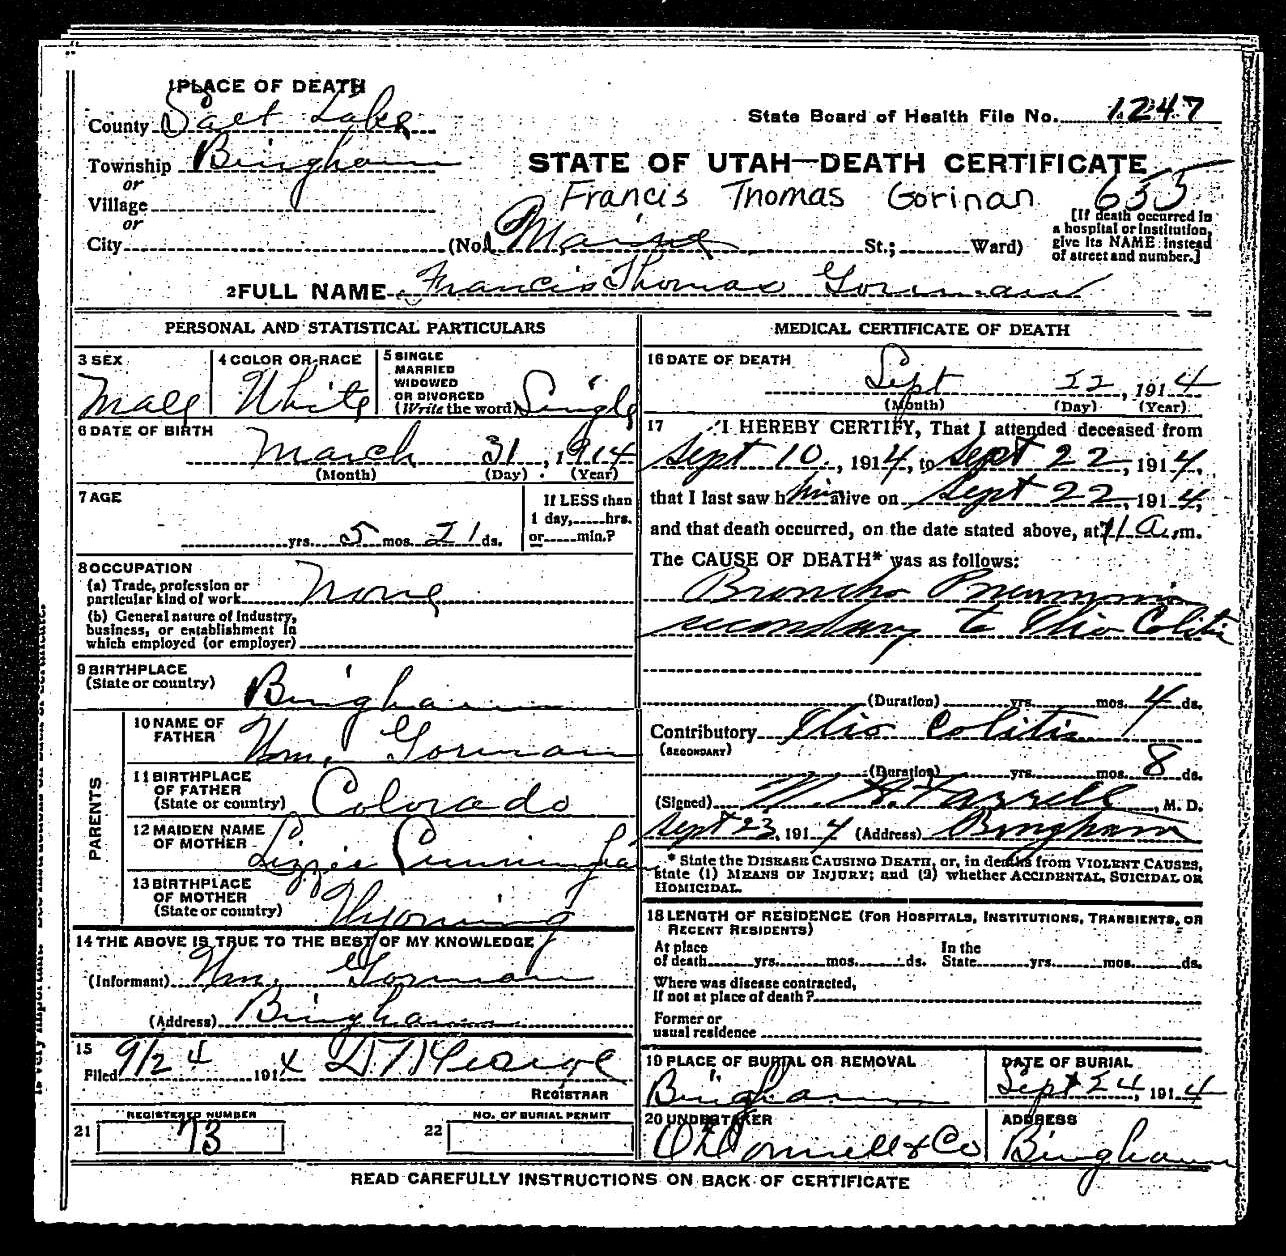 1 PLACE OF DEATH
County Salt Lake
State Board of Health File No. 1247
Township Bingham
or
Village
or
City
STATE OF UTAH—DEATH CERTIFICATE
Francis Thomas Gorinan 655
(No. Maine St.; Ward)
[If death occurred in
a hospital or institution,
give its NAME instead
of street and number.]
2 FULL NAME Francis Thomas Gorman
PERSONAL AND STATISTICAL PARTICULARS
3 SEX
Male
4 COLOR OR RACE
White
5 SINGLE
MARRIED
WIDOWED
OR DIVORCED
(Write the word) Single
6 DATE OF BIRTH
March 31, 1914
(Month) (Day) (Year)
7 AGE
yrs. 5 mos. 21 ds.
If LESS than
1 day, hrs.
or min.?
8 OCCUPATION
(a) Trade, profession or
particular kind of work None
(b) General nature of Industry,
business, or establishment In
which employed (or employer)
9 BIRTHPLACE
(State or country) Bingham
PARENTS
10 NAME OF
FATHER Wm. Gorman
11 BIRTHPLACE
OF FATHER
(State or country) Colorado
12 MAIDEN NAME
OF MOTHER Lizzie Cunningham
13 BIRTHPLACE
OF MOTHER
(State or country) Wyoming
14 THE ABOVE IS TRUE TO THE BEST OF MY KNOWLEDGE
(Informant) Wm. Gorman
(Address) Bingham
15
Filed 9/24 1914
REGISTRAR
REGISTERED NUMBER
21 73
NO. OF BURIAL PERMIT
22
MEDICAL CERTIFICATE OF DEATH
16 DATE OF DEATH
Sept 22, 1914
(Month) (Day) (Year)
17 I HEREBY CERTIFY, That I attended deceased from
Sept 10, 1914, to Sept 22, 1914,
that I last saw him alive on Sept 22, 1914,
and that death occurred, on the date stated above, at 11 a.m.
The CAUSE OF DEATH* was as follows:
Broncho Pneumonia
secondary to Ilio Colitis
(Duration) yrs. mos. 4 ds.
Contributory Ilio Colitis
(SECONDARY)
(Duration) yrs. mos. 8 ds.
(Signed) Farrell, M. D.
Sept 23, 1914 (Address) Bingham
* State the DISEASE CAUSING DEATH, or, in deaths from VIOLENT CAUSES,
state (1) MEANS OF INJURY; and (2) whether ACCIDENTAL, SUICIDAL OR
HOMICIDAL.
18 LENGTH OF RESIDENCE (FOR HOSPITALS, INSTITUTIONS, TRANSIENTS, OR
RECENT RESIDENTS)
At place
of death yrs. mos. ds.
In the
State yrs. mos. ds.
Where was disease contracted,
If not at place of death?
Former or
usual residence
19 PLACE OF BURIAL OR REMOVAL
Bingham
DATE OF BURIAL
Sept 24, 1914
20 UNDERTAKER
O'Donnell & Co
ADDRESS
Bingham
READ CAREFULLY INSTRUCTIONS ON BACK OF CERTIFICATE